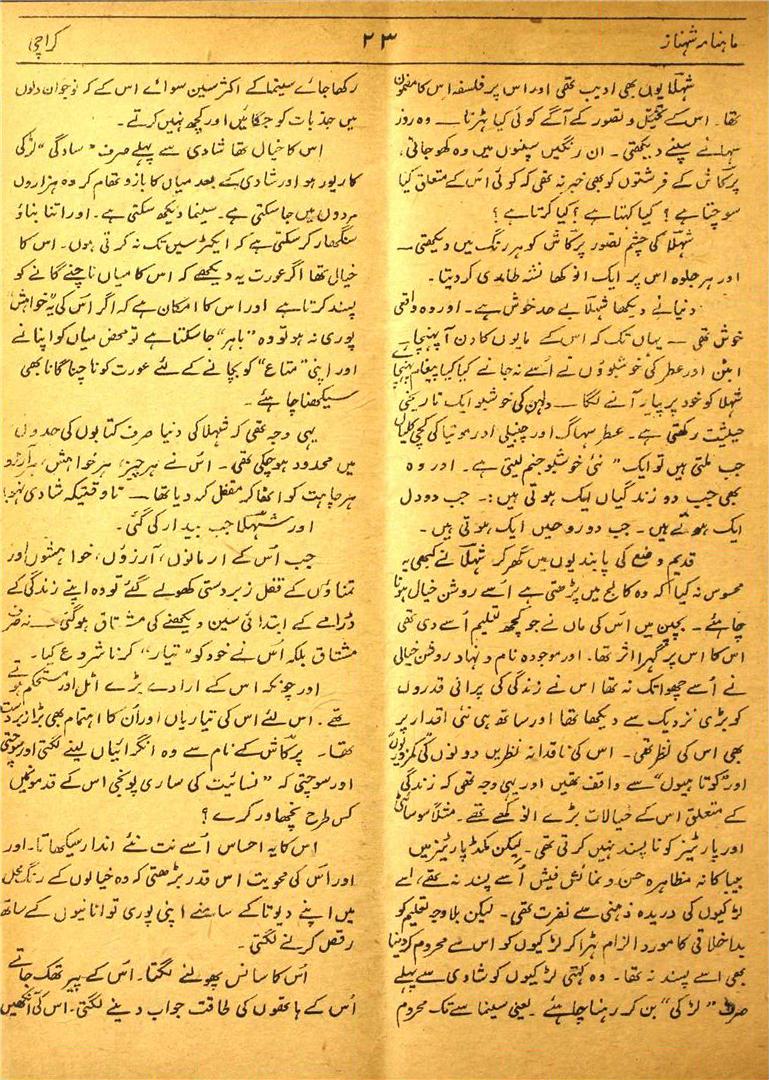 ماہنامہ شہناز
۲۳
کراچی
شہلا یوں بھی ادیب تھی اور اس پر فلسفہ اس کا مضمون
تھا۔ اس کے تخیل و تصور کے آگے کوئی کیا ٹہرتا — وہ روز
سہانے سپنے دیکھتی۔ ان رنگیں سپنوں میں وہ کھو جاتی،
پرکاش کے فرشتوں کو بھی خبر نہ تھی کہ کوئی اس کے متعلق کیا
سوچتا ہے؟ کیا کہتا ہے؟ کیا کرتا ہے؟
شہلا کی چشم تصور پرکاش کو ہر رنگ میں دیکھتی —
اور ہر جلوہ اس پر ایک انوکھا نشہ طاری کر دیتا۔
دنیا نے دیکھا شہلا بے حد خوش ہے۔ اور وہ واقعی
خوش تھی — یہاں تک کہ اس کے مایوں کا دن آ پہنچا
ابٹن اور عطر کی خوشبوؤں نے اُسے نہ جانے کیا کیا پیغام پہنچائے
شہلا کو خود پر پیار آنے لگا — دلہن کی خوشبو ایک تاریخی
حیثیت رکھتی ہے۔ عطر سہاگ اور چنبیلی اور موتیا کی کچی کلیاں
جب ملتی ہیں تو ایک " نئی خوشبو جنم لیتی ہے۔ اور وہ
بھی جب دو زندگیاں ایک ہوتی ہیں :۔ جب دو دل
ایک ہوتے ہیں۔ جب دو روحیں ایک ہوتی ہیں۔
قدیم وضع کی پابندیوں میں گھر کر شہلا نے کبھی یہ
محسوس نہ کیا کہ وہ کالج میں پڑھتی ہے اُسے روشن خیال ہونا
چاہئے۔ بچپن میں اس کی ماں نے جو کچھ تعلیم اُسے دی تھی
اس کا اس پر گہرا اثر تھا۔ اور موجودہ نام و نہاد روشن خیالی
نے اُسے چھوا تک نہ تھا اس نے زندگی کی پرانی قدروں
کو بڑی نزدیک سے دیکھا تھا اور ساتھ ہی نئی اقدار پر
بھی اس کی نظر تھی۔ اس کی ناقدانہ نظریں دونوں کی کمزوریوں
اور "کوتاہیوں" سے واقف تھیں اور یہی وجہ تھی کہ زندگی
کے متعلق اس کے خیالات بڑے انوکھے تھے۔ مثلاً سوسائٹی
اور پارٹیز کو ناپسند نہیں کرتی تھی۔ لیکن مکسڈ پارٹیز میں
بیباکانہ مظاہرہ حسن و نمائش فیشن اُسے پسند نہ تھے، اسے
لڑکیوں کی دریدہ ذہنی سے نفرت تھی۔ لیکن بلا وجہ تعلیم کو
بداخلاقی کا مورد الزام ٹہرا کر لڑکیوں کو اس سے محروم کر دینا
بھی اسے پسند نہ تھا۔ وہ کہتی لڑکیوں کو شادی سے پہلے
صرف " لڑکی" بن کر رہنا چاہئے۔ یعنی سینما سے تک محروم
رکھا جائے سینما کے اکثر سین سوائے اس کے کہ نوجوان دلوں
میں جذبات کو جگائیں اور کچھ نہیں کرتے۔
اس کا خیال تھا شادی سے پہلے صرف " سادگی" لڑکی
کا زیور ہو اور شادی کے بعد میاں کا بازو تھام کر وہ ہزاروں
مردوں میں جا سکتی ہے۔ سینما دیکھ سکتی ہے۔ اور اتنا بناؤ
سنگھار کر سکتی ہے کہ ایکٹرسیں تک نہ کرتی ہوں۔ اس کا
خیال تھا اگر عورت یہ دیکھے کہ اس کا میاں ناچنے گانے کو
پسند کرتا ہے اور اس کا امکان ہے کہ اگر اس کی یہ خواہش
پوری نہ ہو تو وہ "باہر" جا سکتا ہے تو محض میاں کو اپنانے
اور اپنی " متاع " کو بچانے کے لئے عورت کو ناچنا گانا بھی
سیکھنا چاہئے۔
یہی وجہ تھی کہ شہلا کی دنیا صرف کتابوں کی حدوں
میں محدود ہو چکی تھی۔ اس نے ہر چیز، ہر خواہش، ہر آرزو
ہر چاہت کو اٹھا کر مقفل کر دیا تھا — تاوقتیکہ شادی نہ ہو
اور شہلا جب بیدار کی گئی۔
جب اُس کے ارمانوں، آرزوں، خواہشوں اور
تمناؤں کے قفل زبردستی کھولے گئے تو وہ اپنے زندگی کے
ڈرامے کے ابتدائی سین دیکھنے کی مشتاق ہو گئی — نہ صرف
مشتاق بلکہ اُس نے خود کو " تیار " کرنا شروع کیا۔
اور چونکہ اس کے ارادے بڑے اٹل اور مستحکم ہوتے
تھے۔ اس لئے اس کی تیاریاں اور اُن کا اہتمام بھی بڑا زبردست
تھا۔ پرکاش کے نام سے وہ انگڑائیاں لینے لگتی اور سوچتی
اور سوچتی کہ " نسائیت کی ساری پونجی اس کے قدموں میں
کس طرح نچھاور کرے؟
اس کا یہ احساس اُسے نت نئے انداز سیکھاتا۔ اور
اور اس کی محویت اس قدر بڑھتی کہ وہ خیالوں کے رنگ محل
میں اپنے دیوتا کے سامنے اپنی پوری توانائیوں کے ساتھ
رقص کرنے لگتی۔
اس کا سانس پھولنے لگتا۔ اس کے پیر تھک جاتے
اُس کے ہاتھوں کی طاقت جواب دینے لگتی۔ اس کی آنکھیں